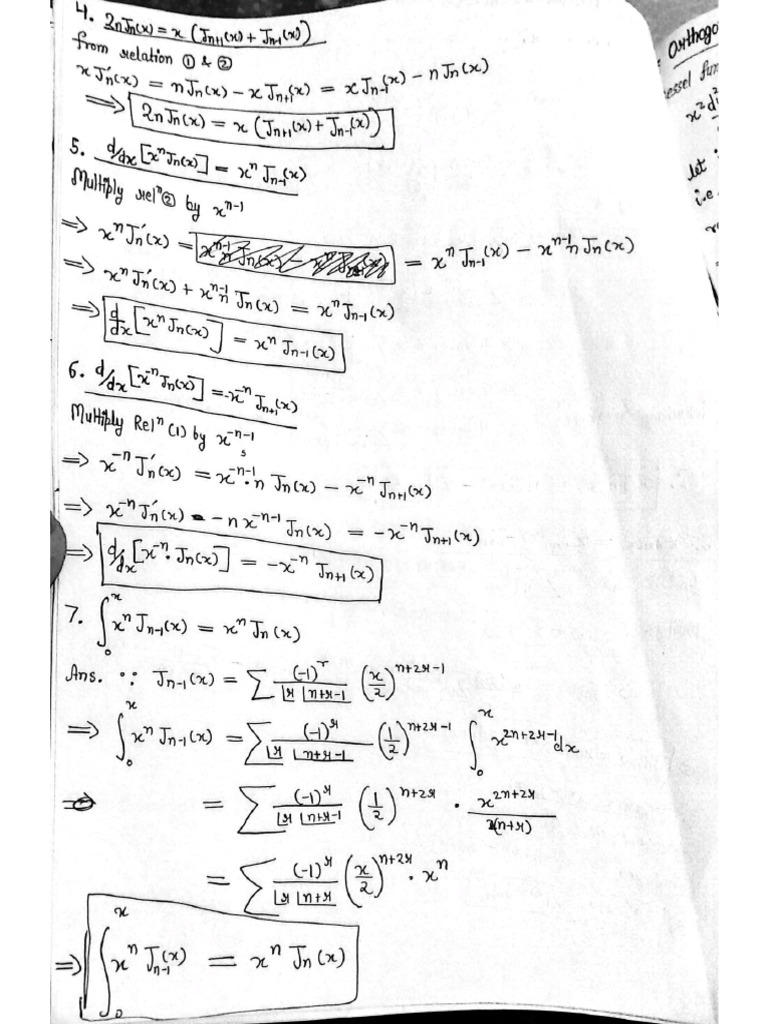 4. 2nJn(x) = x (Jn+1(x) + Jn-1(x))
from relation ① & ②
xJn′(x) = nJn(x) - xJn+1(x) = xJn-1(x) - nJn(x)
⟹ 2nJn(x) = x (Jn+1(x) + Jn-1(x))
5. d/dx [xⁿJn(x)] = xⁿ Jn-1(x)
Multiply relⁿ ② by xⁿ⁻¹
⟹ xⁿJn′(x) = = xⁿ Jn-1(x) - xⁿ⁻¹n Jn(x)
⟹ xⁿJn′(x) + xⁿ⁻¹n Jn(x) = xⁿJn-1(x)
⟹ d/dx [xⁿJn(x)] = xⁿ Jn-1(x)
6. d/dx [x⁻ⁿJn(x)] = -x⁻ⁿ Jn+1(x)
Multiply Relⁿ (1) by x⁻ⁿ⁻¹,
⟹ x⁻ⁿ Jn′(x) = x⁻ⁿ⁻¹·n Jn(x) - x⁻ⁿ Jn+1(x)
⟹ x⁻ⁿ Jn′(x) - -n x⁻ⁿ⁻¹ Jn(x) = -x⁻ⁿ Jn+1(x)
⟹ d/dx [x⁻ⁿ. Jn(x)] = -x⁻ⁿ Jn+1(x)
7. ∫₀ˣ xⁿ Jn-1(x) = xⁿ Jn(x)
Ans. ∵ Jn-1(x) = ∑ (-1)^r / |r |n+r-1 (x/2)^n+2r-1
⟹ ∫₀ˣ xⁿ Jn-1(x) = ∑ (-1)^r / |r |n+r-1 (1/2)^n+2r-1 ∫₀ˣ x^2n+2r-1 dx
⟹ = ∑ (-1)^r / |r |n+r-1 (1/2)^n+2r . x^2n+2r / (n+r)
= ∑ (-1)^r / |r |n+r (x/2)^n+2r . xⁿ
⟹ ∫₀ˣ xⁿ Jn-1(x) = xⁿ Jn(x)
Orthogo
essel fun
x²d²
let
i.e.